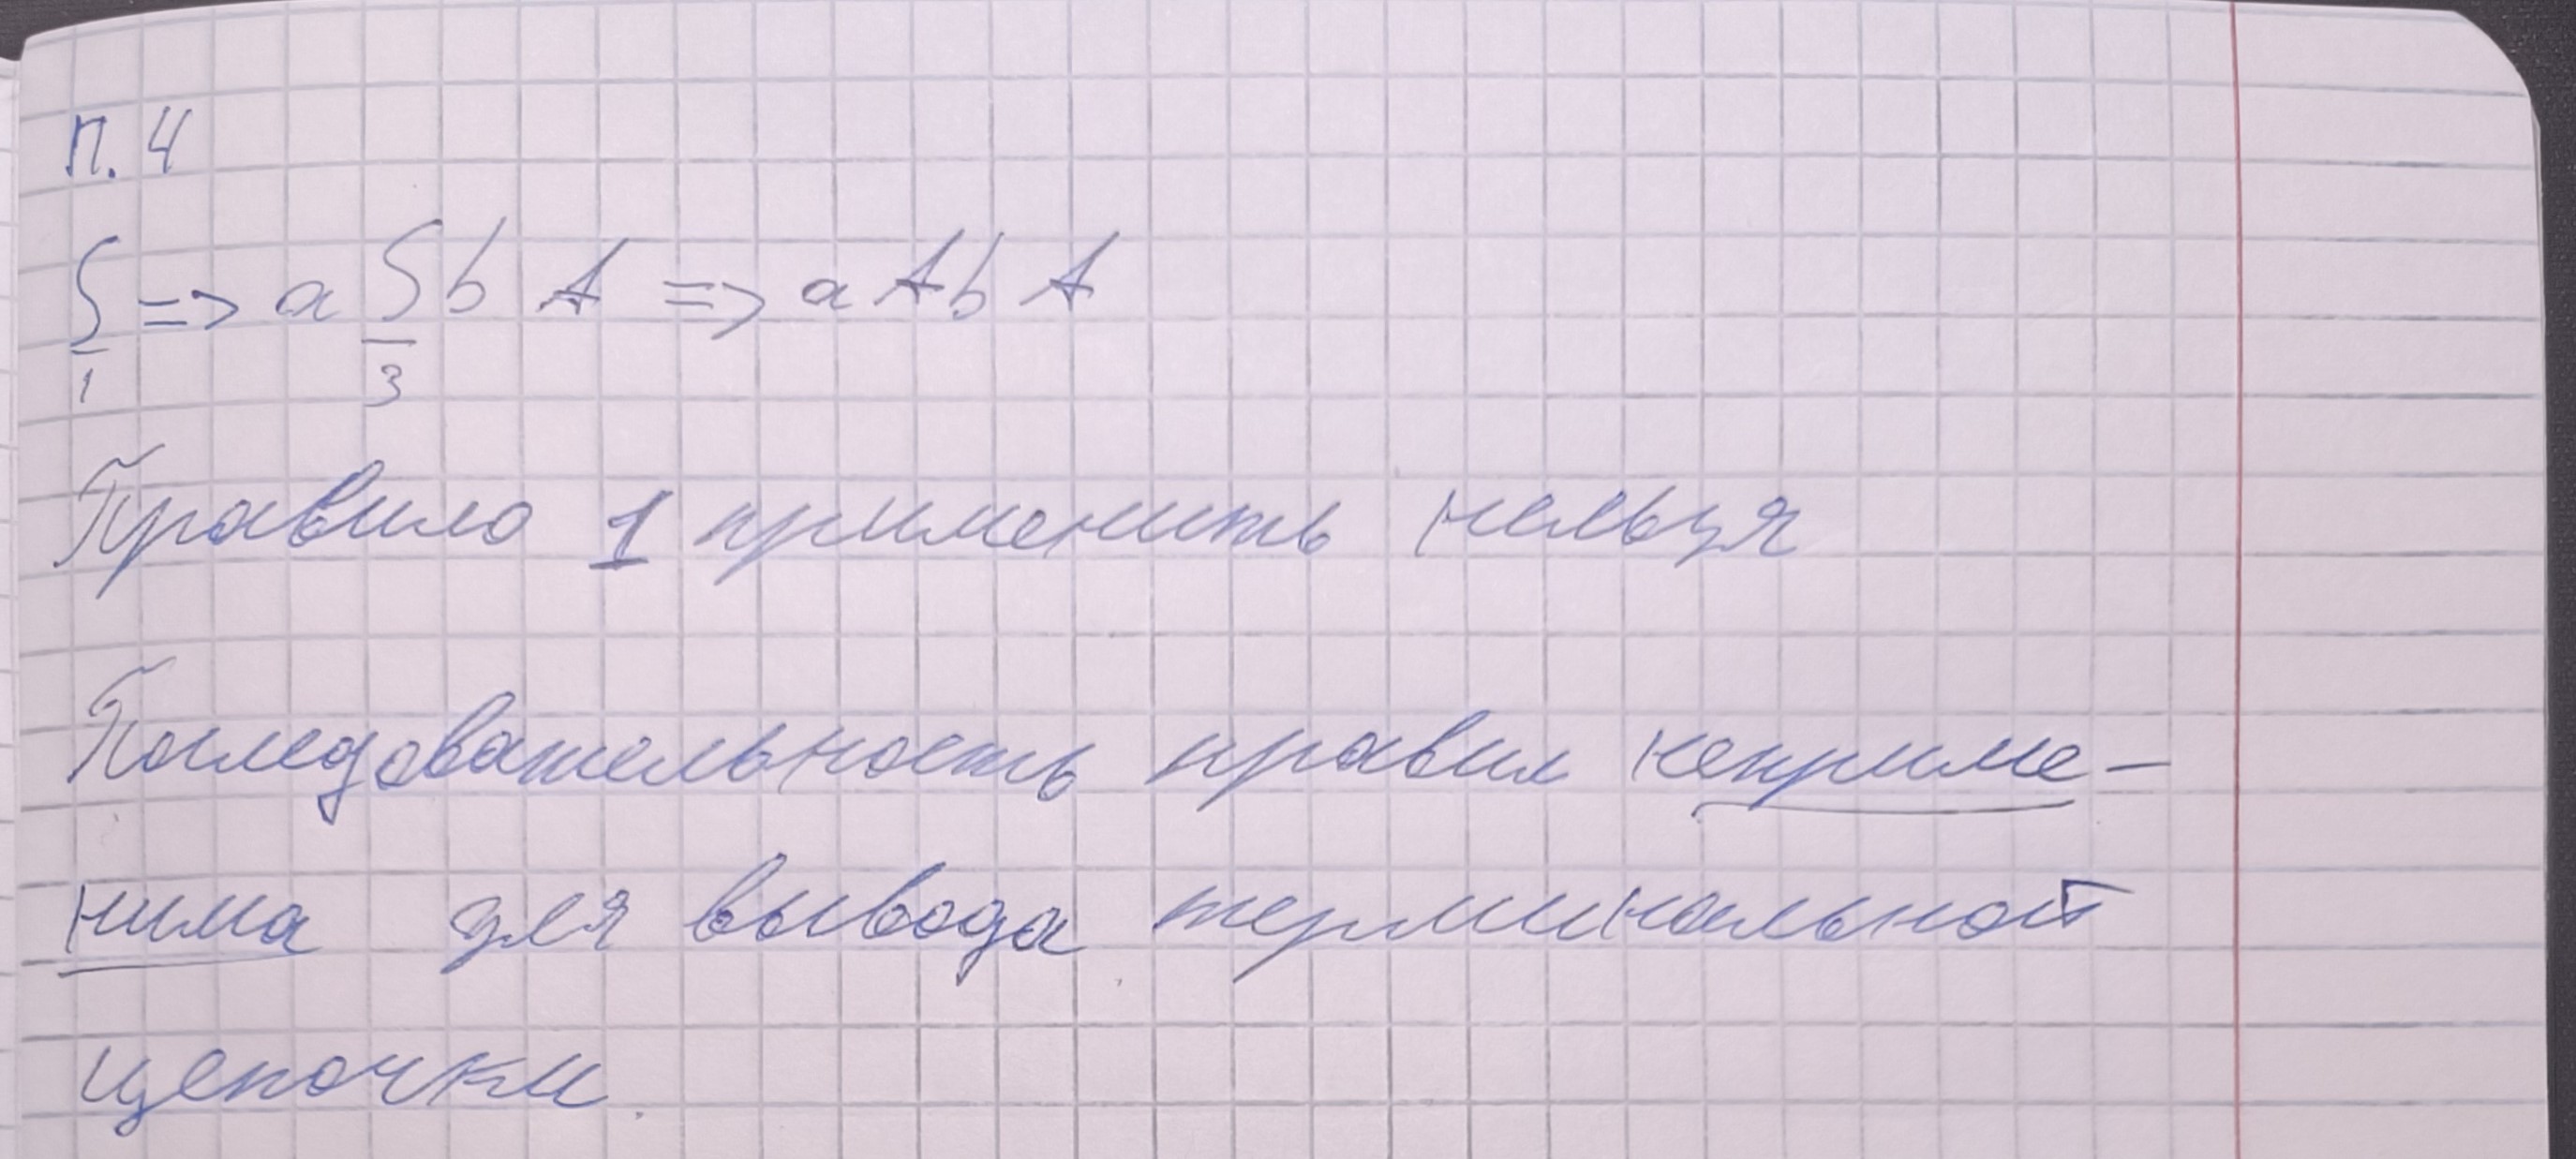 П. 4
S => a S b A => a A b A
1 3
Правило 1 применить нельзя
Последовательность правил неприме-
нима для вывода терминальной
цепочки.